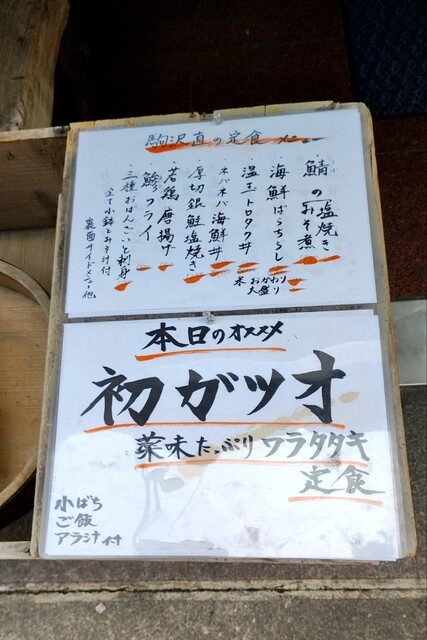 駒沢直の定食メニュー
鯖の塩焼き
みそ煮
・海鮮ばらちらし
・温玉トロタク丼
・ネバネバ海鮮丼
・厚切銀鮭塩焼き
・若鶏唐揚げ
・鯵フライ
・三種おばんざいと刺身
米 おかわり
大盛り
全て小鉢とみそ汁付
裏面サイドメニュー他
本日のオススメ
初ガツオ
薬味たっぷりワラタタキ
定食
小ばち
ご飯
アラ汁付